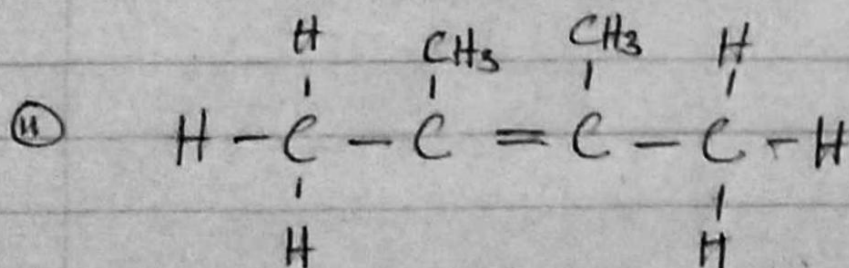 H CH3 CH3 H
11 H - C - C = C - C - H
H H